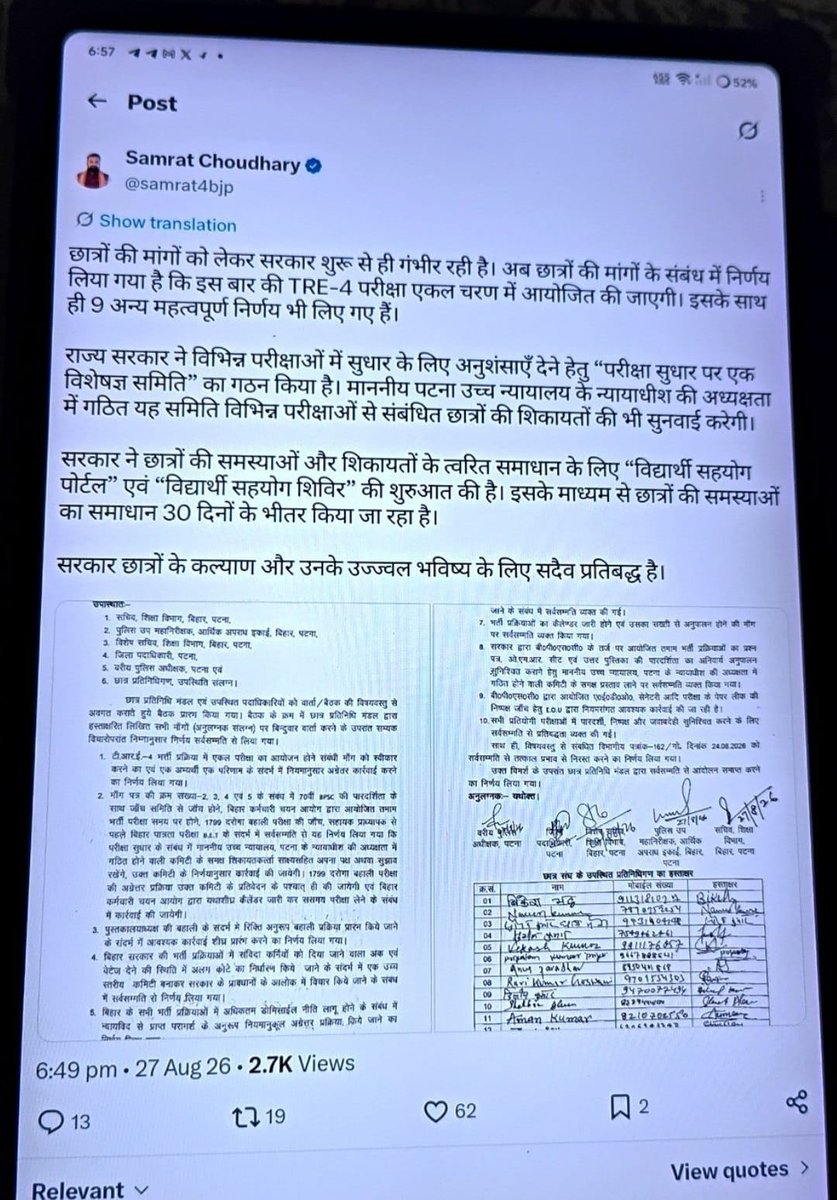 6:57
52%
Post
Samrat Choudhary
@samrat4bjp
Show translation
छात्रों की मांगों को लेकर सरकार शुरू से ही गंभीर रही है। अब छात्रों की मांगों के संबंध में निर्णय
लिया गया है कि इस बार की TRE-4 परीक्षा एकल चरण में आयोजित की जाएगी। इसके साथ
ही 9 अन्य महत्वपूर्ण निर्णय भी लिए गए हैं।
राज्य सरकार ने विभिन्न परीक्षाओं में सुधार के लिए अनुशंसाएँ देने हेतु “परीक्षा सुधार पर एक
विशेषज्ञ समिति” का गठन किया है। माननीय पटना उच्च न्यायालय के न्यायाधीश की अध्यक्षता
में गठित यह समिति विभिन्न परीक्षाओं से संबंधित छात्रों की शिकायतों की भी सुनवाई करेगी।
सरकार ने छात्रों की समस्याओं और शिकायतों के त्वरित समाधान के लिए “विद्यार्थी सहयोग
पोर्टल” एवं “विद्यार्थी सहयोग शिविर” की शुरुआत की है। इसके माध्यम से छात्रों की समस्याओं
का समाधान 30 दिनों के भीतर किया जा रहा है।
सरकार छात्रों के कल्याण और उनके उज्ज्वल भविष्य के लिए सदैव प्रतिबद्ध है।
उपस्थितिः-
1. सचिव, शिक्षा विभाग, बिहार, पटना,
2. पुलिस उप महानिरीक्षक, आर्थिक अपराध इकाई, बिहार, पटना,
3. विशेष सचिव, शिक्षा विभाग, बिहार, पटना,
4. जिला पदाधिकारी, पटना,
5. वरीय पुलिस अधीक्षक, पटना एवं
6. छात्र प्रतिनिधिगण, उपस्थिति संलग्न।
छात्र प्रतिनिधि मंडल एवं उपस्थित पदाधिकारियों को वार्ता/बैठक की विषयवस्तु से
अवगत कराते हुये बैठक प्रारम्भ किया गया। बैठक के क्रम में छात्र प्रतिनिधि मंडल द्वारा
हस्ताक्षरित लिखित सभी माँगों (अनुलग्नक संलग्न) पर बिन्दुवार वार्ता करने के उपरांत सम्यक
विचारोपरांत निम्नानुसार निर्णय सर्वसम्मति से लिया गया।
1. टी.आर.ई.-4 भर्ती प्रक्रिया में एकल परीक्षा का आयोजन होने संबंधी माँग को स्वीकार
करने का एवं एक अभ्यर्थी एक परिणाम के संदर्भ में नियमानुसार अग्रेतर कार्रवाई करने
का निर्णय लिया गया।
2. माँग पत्र की क्रम संख्या-2, 3, 4 एवं 5 के संबंध में 70वीं BPSC की पारदर्शिता के
साथ जाँच समिति से जाँच होने, बिहार कर्मचारी चयन आयोग द्वारा आयोजित तमाम
भर्ती परीक्षा समय पर होने, 1799 दरोगा बहाली परीक्षा की जाँच, सहायक प्राध्यापक से
पहले बिहार पात्रता परीक्षा B.E.T के संदर्भ में सर्वसम्मति से यह निर्णय लिया गया कि
परीक्षा सुधार के संबंध में माननीय उच्च न्यायालय, पटना के न्यायाधीश की अध्यक्षता में
गठित होने वाली कमिटी के समक्ष शिकायतकर्ता साक्ष्यसहित अपना पक्ष अथवा सुझाव
रखेंगे, उक्त कमिटी के निर्णयानुसार कार्रवाई की जायेगी। 1799 दरोगा बहाली परीक्षा
की अग्रेतर प्रक्रिया उक्त कमिटी के प्रतिवेदन के पश्चात् ही की जायेगी एवं बिहार
कर्मचारी चयन आयोग द्वारा यथाशीघ्र कैलेंडर जारी कर ससमय परीक्षा लेने के संबंध
में कार्रवाई की जायेगी।
3. पुस्तकालयाध्यक्ष की बहाली के संदर्भ में रिक्ति अनुरूप बहाली प्रक्रिया प्रारंभ किये जाने
के संदर्भ में आवश्यक कार्रवाई शीघ्र प्रारंभ करने का निर्णय लिया गया।
4. बिहार सरकार की भर्ती प्रक्रियाओं में संविदा कर्मियों को दिया जाने वाला अंक एवं
वेटेज देने की स्थिति में अलग कोटे का निर्धारण किये जाने के संदर्भ में एक उच्च
स्तरीय कमिटी बनाकर सरकार के प्रावधानों के आलोक में विचार किये जाने के संबंध
में सर्वसम्मति से निर्णय लिया गया।
5. बिहार के सभी भर्ती परीक्षाओं में अधिकतम डोमिसाईल नीति लागू होने के संबंध में
न्यायविद से प्राप्त परामर्श के अनुरूप नियमानुकूल अग्रेत्तर प्रक्रिया, किये जाने का
जाने के संबंध में सर्वसम्मति व्यक्त की गई।
7. भर्ती प्रक्रियाओं का कैलेण्डर जारी होने एवं उसका सख्ती से अनुपालन होने की माँग
पर सर्वसम्मति व्यक्त किया गया।
8. सरकार द्वारा बी०पी०एस०सी० के तर्ज पर आयोजित तमाम भर्ती प्रक्रियाओं का प्रश्न
पत्र, ओ.एम.आर. सीट एवं उत्तर पुस्तिका की पारदर्शिता का अनिवार्य अनुपालन
सुनिश्चित कराने हेतु माननीय उच्च न्यायालय, पटना के न्यायाधीश की अध्यक्षता में
गठित होने वाली कमिटी के समक्ष प्रस्ताव लाने पर सर्वसम्मति व्यक्त किया गया।
9. बी०पी०एस०सी० द्वारा आयोजित ए०ई०डी०ओ०, सेनेटरी आदि परीक्षा के पेपर लीक की
निष्पक्ष जाँच हेतु E.O.U द्वारा नियमसंगत आवश्यक कार्रवाई की जा रही है।
10. सभी प्रतियोगी परीक्षाओं में पारदर्शी, निष्पक्ष और जवाबदेही सुनिश्चित करने के लिए
सर्वसम्मति से प्रतिबद्धता व्यक्त की गई।
साथ ही, विषयवस्तु से संबंधित विभागीय पत्रांक-162/गो. दिनांक 24.08.2026 को
सर्वसम्मति से तत्काल प्रभाव से निरस्त करने का निर्णय लिया गया।
उक्त विमर्श के उपरांत छात्र प्रतिनिधि मंडल द्वारा सर्वसम्मति से आंदोलन समाप्त करने
का निर्णय लिया गया।
अनुलग्नकः- यथोक्त।
वरीय पुलिस
अधीक्षक, पटना
पटना
बिहार, पटना
पुलिस उप
महानिरीक्षक, आर्थिक
अपराध इकाई, बिहार,
पटना
27/8/26
सचिव, शिक्षा
विभाग,
बिहार, पटना
छात्र संघ के उपस्थित प्रतिनिधिगण का हस्ताक्षर
क्र.सं. नाम मोबाईल संख्या हस्ताक्षर
01
02 Kumar
03
04
05 Vikash Kumar
06
07
08 Ravi Kumar
09
10
11 Aman Kumar
6:49 pm • 27 Aug 26 • 2.7K Views
13 19 62 2
Relevant
View quotes